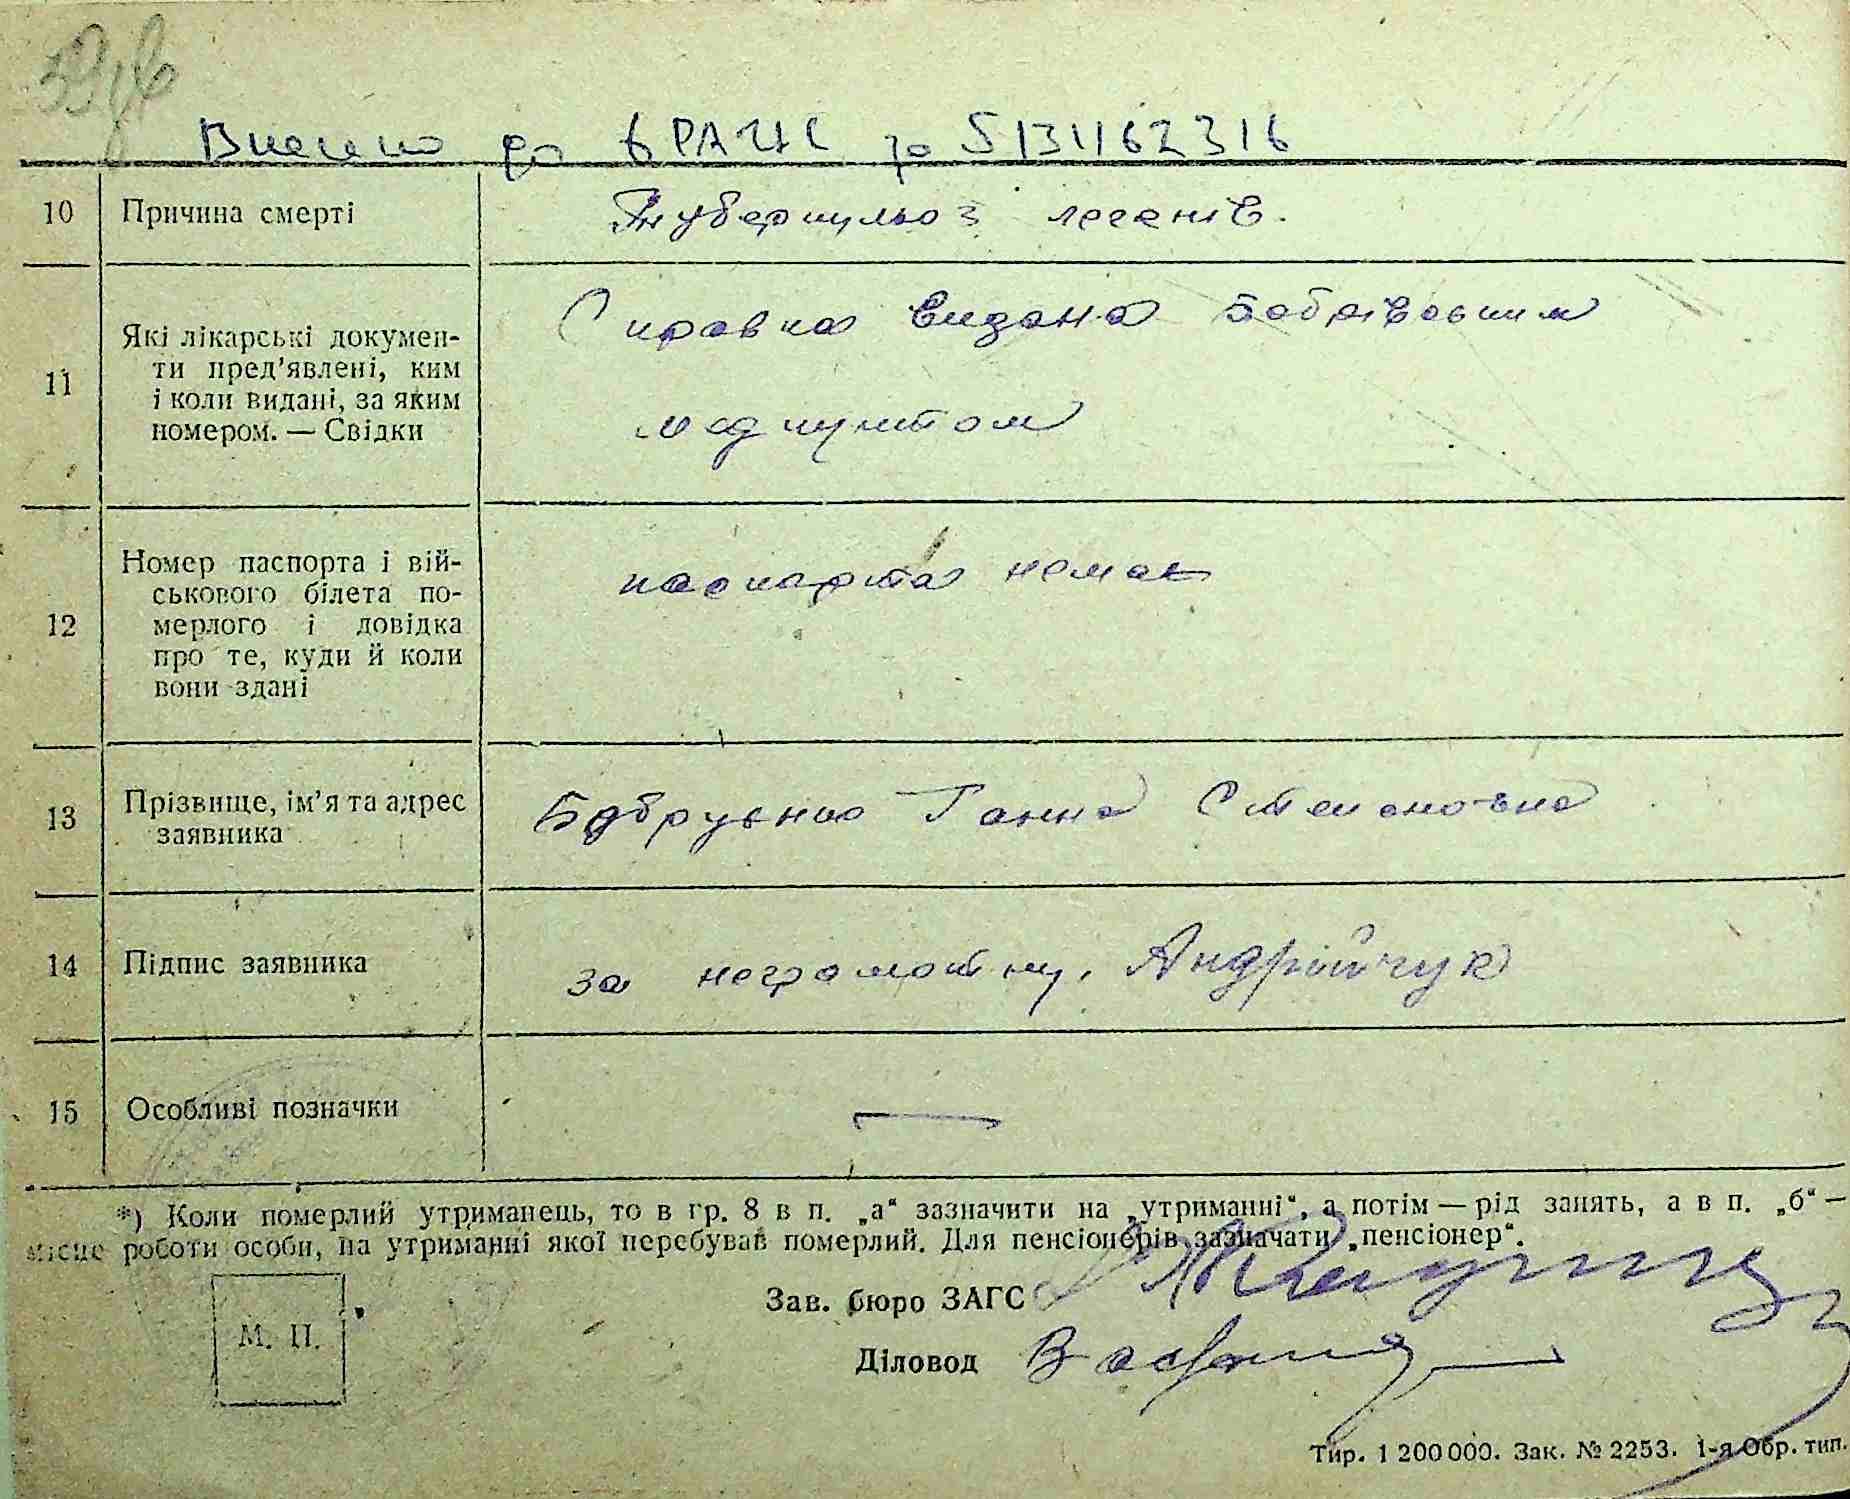 Внесено до ЄРАЦС за 5131162316
10 Причина смерті Туберкульоз легенів.
11 Які лікарські докумен-
ти пред'явлені, ким
і коли видані, за яким
номером. — Свідки
Справка видана
медпунктом
12 Номер паспорта і вій-
ськового білета по-
мерлого і довідка
про те, куди й коли
вони здані
паспорта немає
13 Прізвище, ім'я та адрес
заявника
Ганна Степановна
14 Підпис заявника за неграмотну, Андрійчук
15 Особливі позначки —
*) Коли померлий утриманець, то в гр. 8 в п. „а“ зазначити на „утриманні“, а потім — рід занять, а в п. „б“ —
місце роботи особи, на утриманні якої перебував померлий. Для пенсіонерів зазначати „пенсіонер“.
Зав. бюро ЗАГС
М. П.
Діловод
Тир. 1 200 000. Зак. № 2253. 1-я Обр. тип.